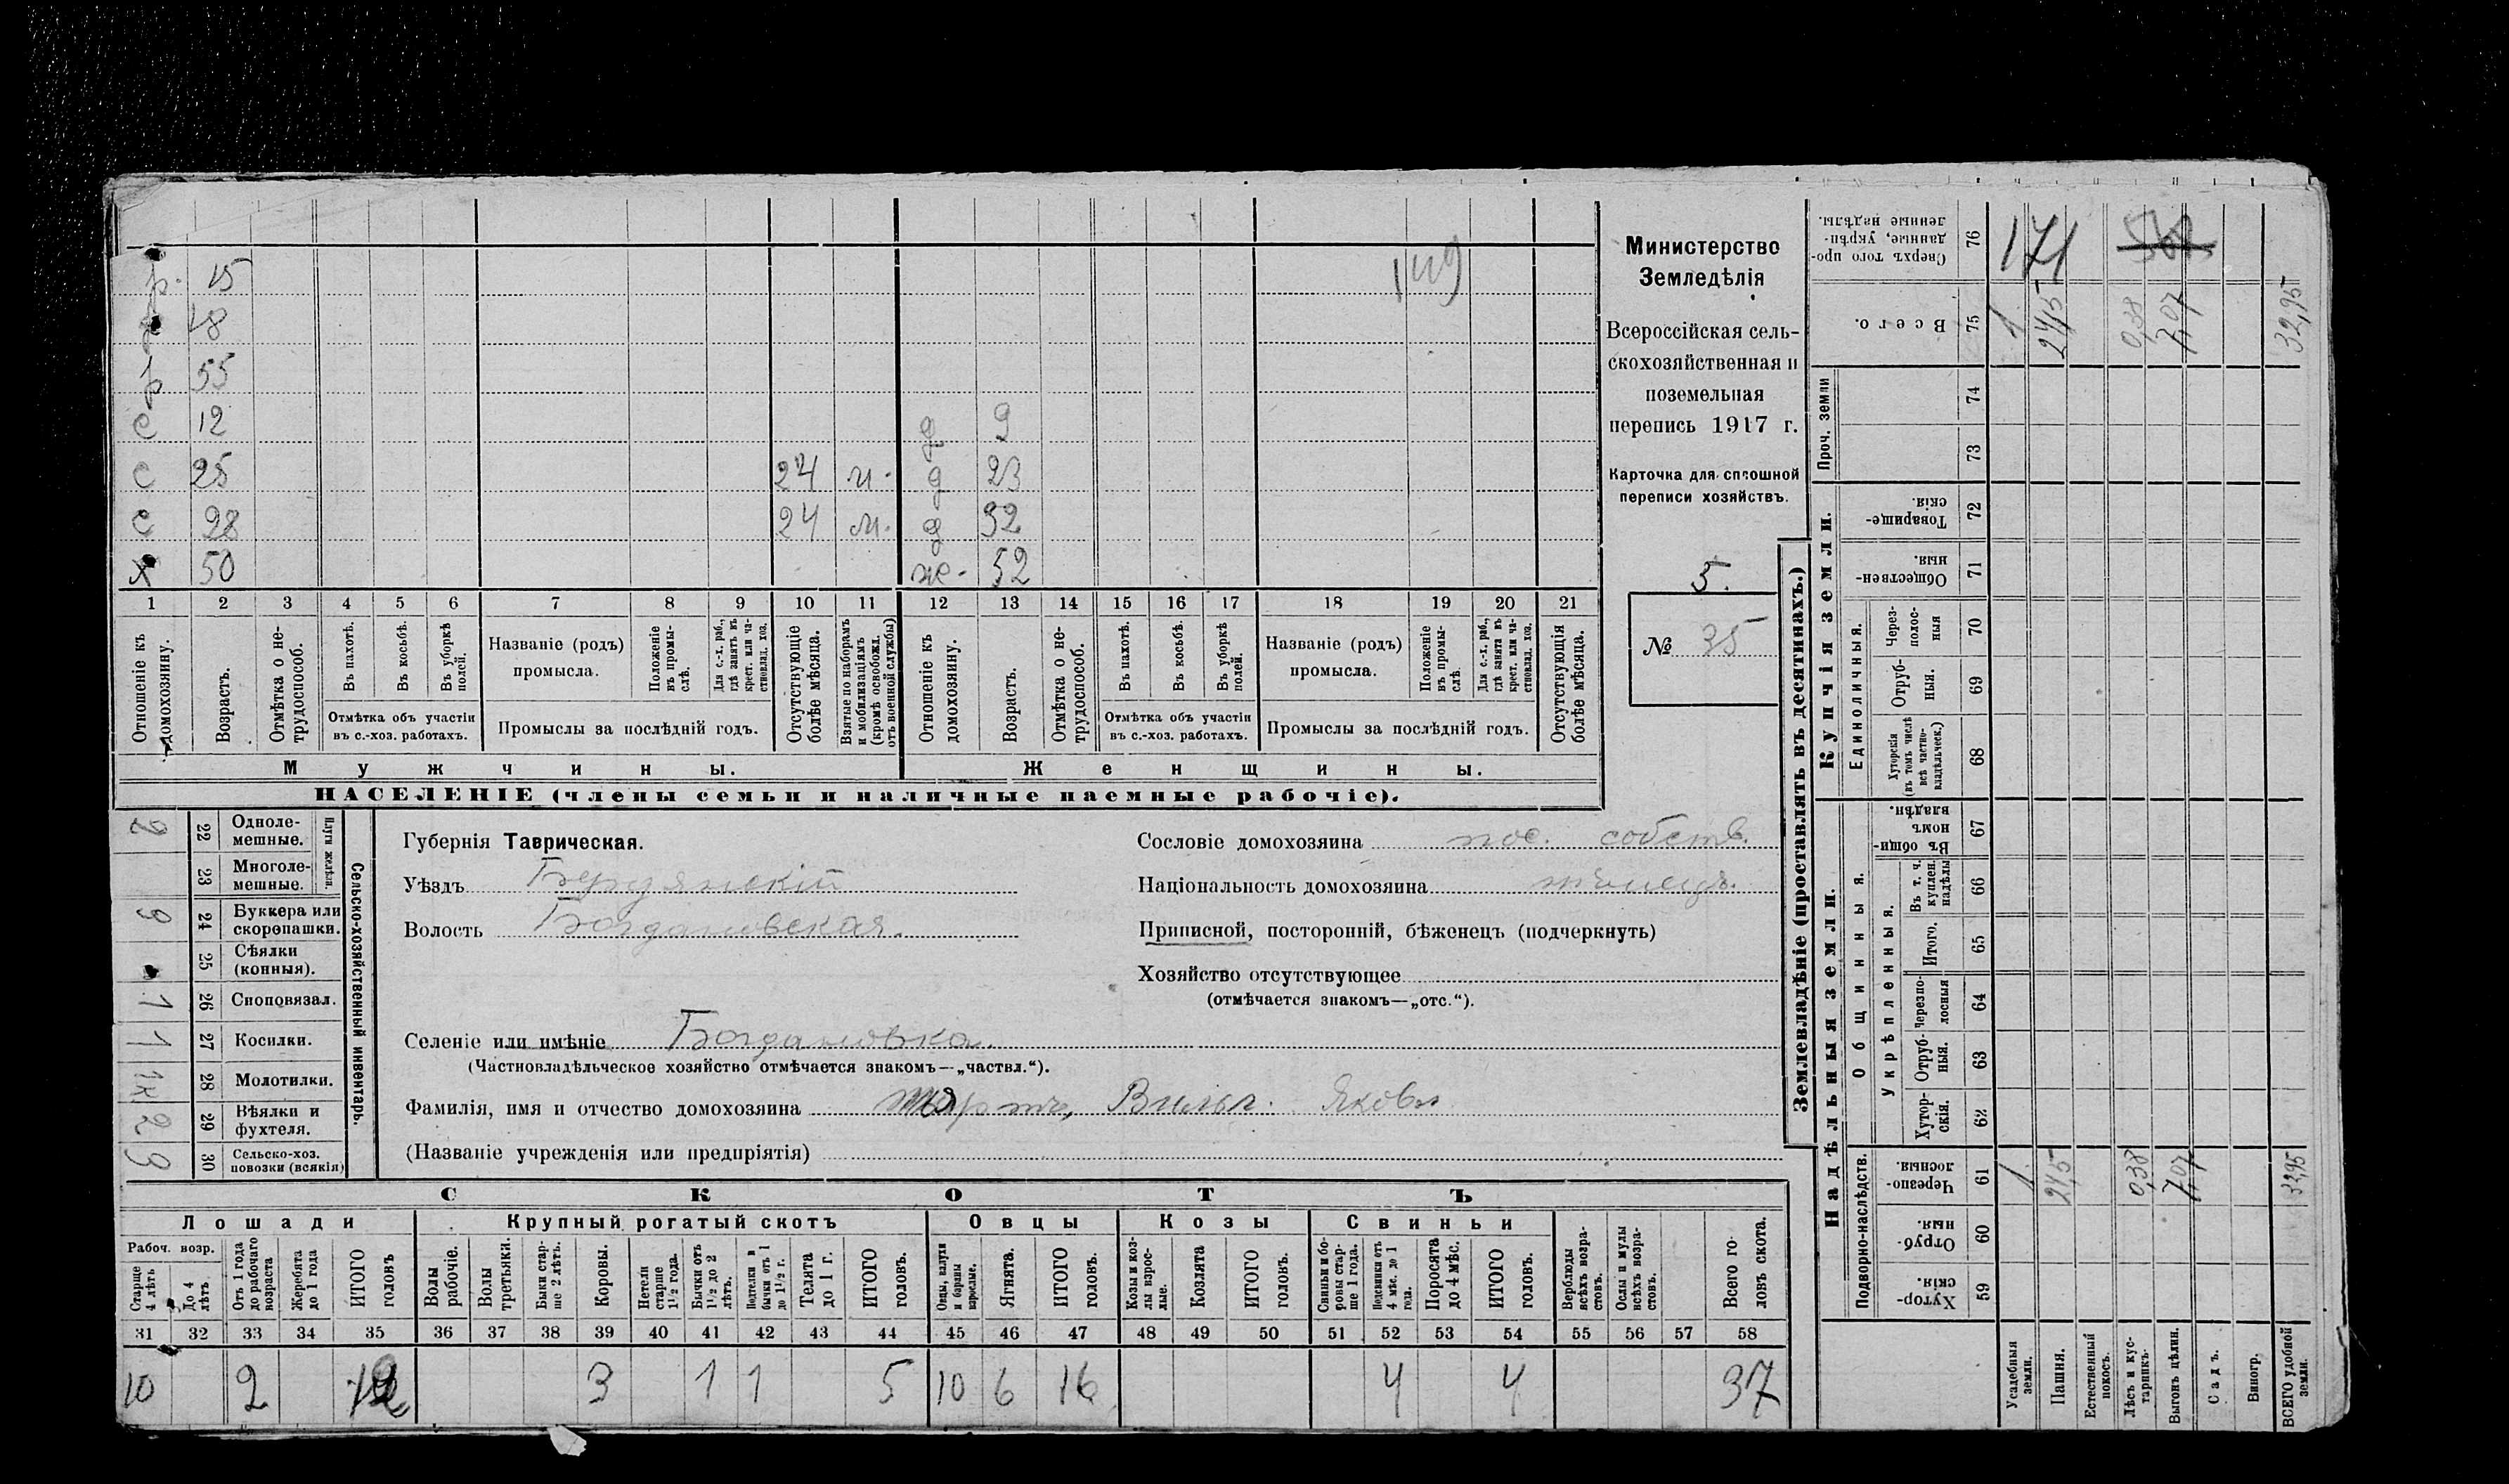 149
р. 15
18
р 55
с 12 д 9
с 25 24 м. д 23
с 28 24 м. д 32
х 50 ж. 52
1 2 3 4 5 6 7 8 9 10 11 12 13 14 15 16 17 18 19 20 21
Отношеніе къ домохозяину.
Возрастъ.
Отмѣтка о не-трудоспособ.
Въ пахотѣ.
Въ косьбѣ.
Въ уборкѣ полей.
Отмѣтка объ участіи въ с.-хоз. работахъ.
Названіе (родъ) промысла.
Положеніе въ промы-слѣ.
Для с.-х. раб., гдѣ занятъ въ крест. или ча-стновлад. хоз.
Промыслы за послѣдній годъ.
Отсутствующіе болѣе мѣсяца.
Взятые по наборамъ и мобилизаціямъ (кромѣ освобожд. отъ военной службы)
Отношеніе къ домохозяину.
Возрастъ.
Отмѣтка о не-трудоспособ.
Въ пахотѣ.
Въ косьбѣ.
Въ уборкѣ полей.
Отмѣтка объ участіи въ с.-хоз. работахъ.
Названіе (родъ) промысла.
Положеніе въ промы-слѣ.
Для с.-х. раб., гдѣ занята въ крест. или ча-стновлад. хоз.
Промыслы за послѣдній годъ.
Отсутствующія болѣе мѣсяца.
Мужчины. Женщины.
НАСЕЛЕНІЕ (члены семьи и наличные наемные рабочіе).
Министерство
Земледѣлія
Всероссійская сель-
скохозяйственная и
поземельная
перепись 1917 г.
Карточка для сплошной
переписи хозяйствъ.
5.
№ 35
Сельско-хозяйственный инвентарь.
Плуги желѣзн.
2 22 Одноле-мешные.
23 Многоле-мешные.
24 Буккера или скоропашки.
25 Сѣялки (конныя).
1 26 Сноповязал.
1 27 Косилки.
1к 28 Молотилки.
2 29 Вѣялки и фухтеля.
30 Сельско-хоз. повозки (всякія)
Губернія Таврическая.
Уѣздъ Бердянскій
Волость Богдановская.
Сословіе домохозяина пос. собств.
Національность домохозяина нѣмецъ.
Приписной, посторонній, бѣженецъ (подчеркнуть)
Хозяйство отсутствующее
(отмѣчается знакомъ—„отс.“).
Селеніе или имѣніе Богдановка.
(Частновладѣльческое хозяйство отмѣчается знакомъ—„частвл.“).
Фамилія, имя и отчество домохозяина Вильг. Яковл
(Названіе учрежденія или предпріятія)
СКОТЪ
Лошади Крупный рогатый скотъ Овцы Козы Свиньи
Рабоч. возр.
Старше 4 лѣтъ
До 4 лѣтъ.
Отъ 1 года до рабочаго возраста
Жеребята до 1 года
ИТОГО головъ
Волы рабочіе.
Волы третьяки.
Быки стар-ше 2 лѣтъ.
Коровы.
Нетели старше 1½ года.
Бычки отъ 1½ до 2 лѣтъ.
Подтелки и бычки отъ 1 до 1½ г.
Телята до 1 г.
ИТОГО головъ.
Овцы, валухи и бараны взрослые.
Ягнята.
ИТОГО головъ.
Козы и коз-лы взрос-лые.
Козлята
ИТОГО головъ.
Свиньи и бо-ровы стар-ше 1 года.
Подсвинки отъ 4 мѣс. до 1 года.
Поросята до 4 мѣс.
ИТОГО головъ.
Верблюды всѣхъ возра-стовъ.
Ослы и мулы всѣхъ возра-стовъ.
Всего го-ловъ скота.
31 32 33 34 35 36 37 38 39 40 41 42 43 44 45 46 47 48 49 50 51 52 53 54 55 56 57 58
10 2 12 3 1 1 5 10 6 16 4 4 37
Землевладѣніе (проставлять въ десятинахъ.)
Надѣльныя земли.
Купчія земли.
Проч. земли
Подворно-наслѣдств.
Общинныя.
Укрѣпленныя.
Единоличныя.
Сверхъ того про-данные, укрѣп-ленные надѣлы. 76 171
Всего. 75 1 24,5 0,38 7,07 32,95
74
73
Товарище-скія. 72
Обществен-ныя. 71
Через-полос-ныя 70
Отруб-ныя. 69
Хуторскія (въ томъ числѣ всѣ частно-владѣльческ.) 68
Въ общи-номъ владѣн. 67
Въ т. ч. куплен. надѣлы 66
Итого. 65
Черезпо-лосныя 64
Отруб-ныя. 63
Хутор-скія. 62
Черезпо-лосныя. 61 1 24,5 0,38 7,07 32,95
Отруб-ныя. 60
Хутор-скія. 59
Усадебныя земли.
Пашня.
Естественный покосъ.
Лѣсъ и кус-тарникъ.
Выгонъ цѣлин.
Садъ.
Виногр.
ВСЕГО удобной земли.